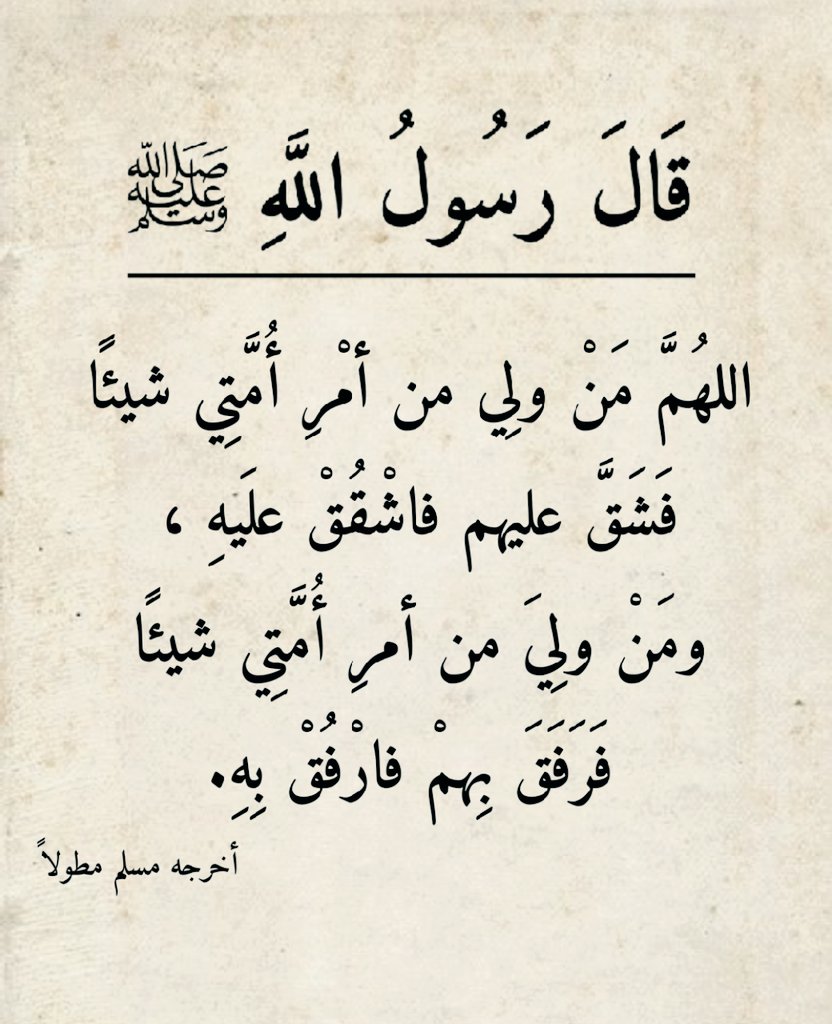 قَالَ رَسُولُ اللَّهِ ﷺ
اللهُمَّ مَنْ ولِي من أمْرِ أُمَّتِي شيئًا
فَشَقَّ عليهم فاشْقُقْ علَيهِ ،
ومَنْ ولِيَ من أمرِ أُمَّتِي شيئًا
فَرَفَقَ بِهمْ فارْفُقْ بِهِ.
أخرجه مسلم مطولاً